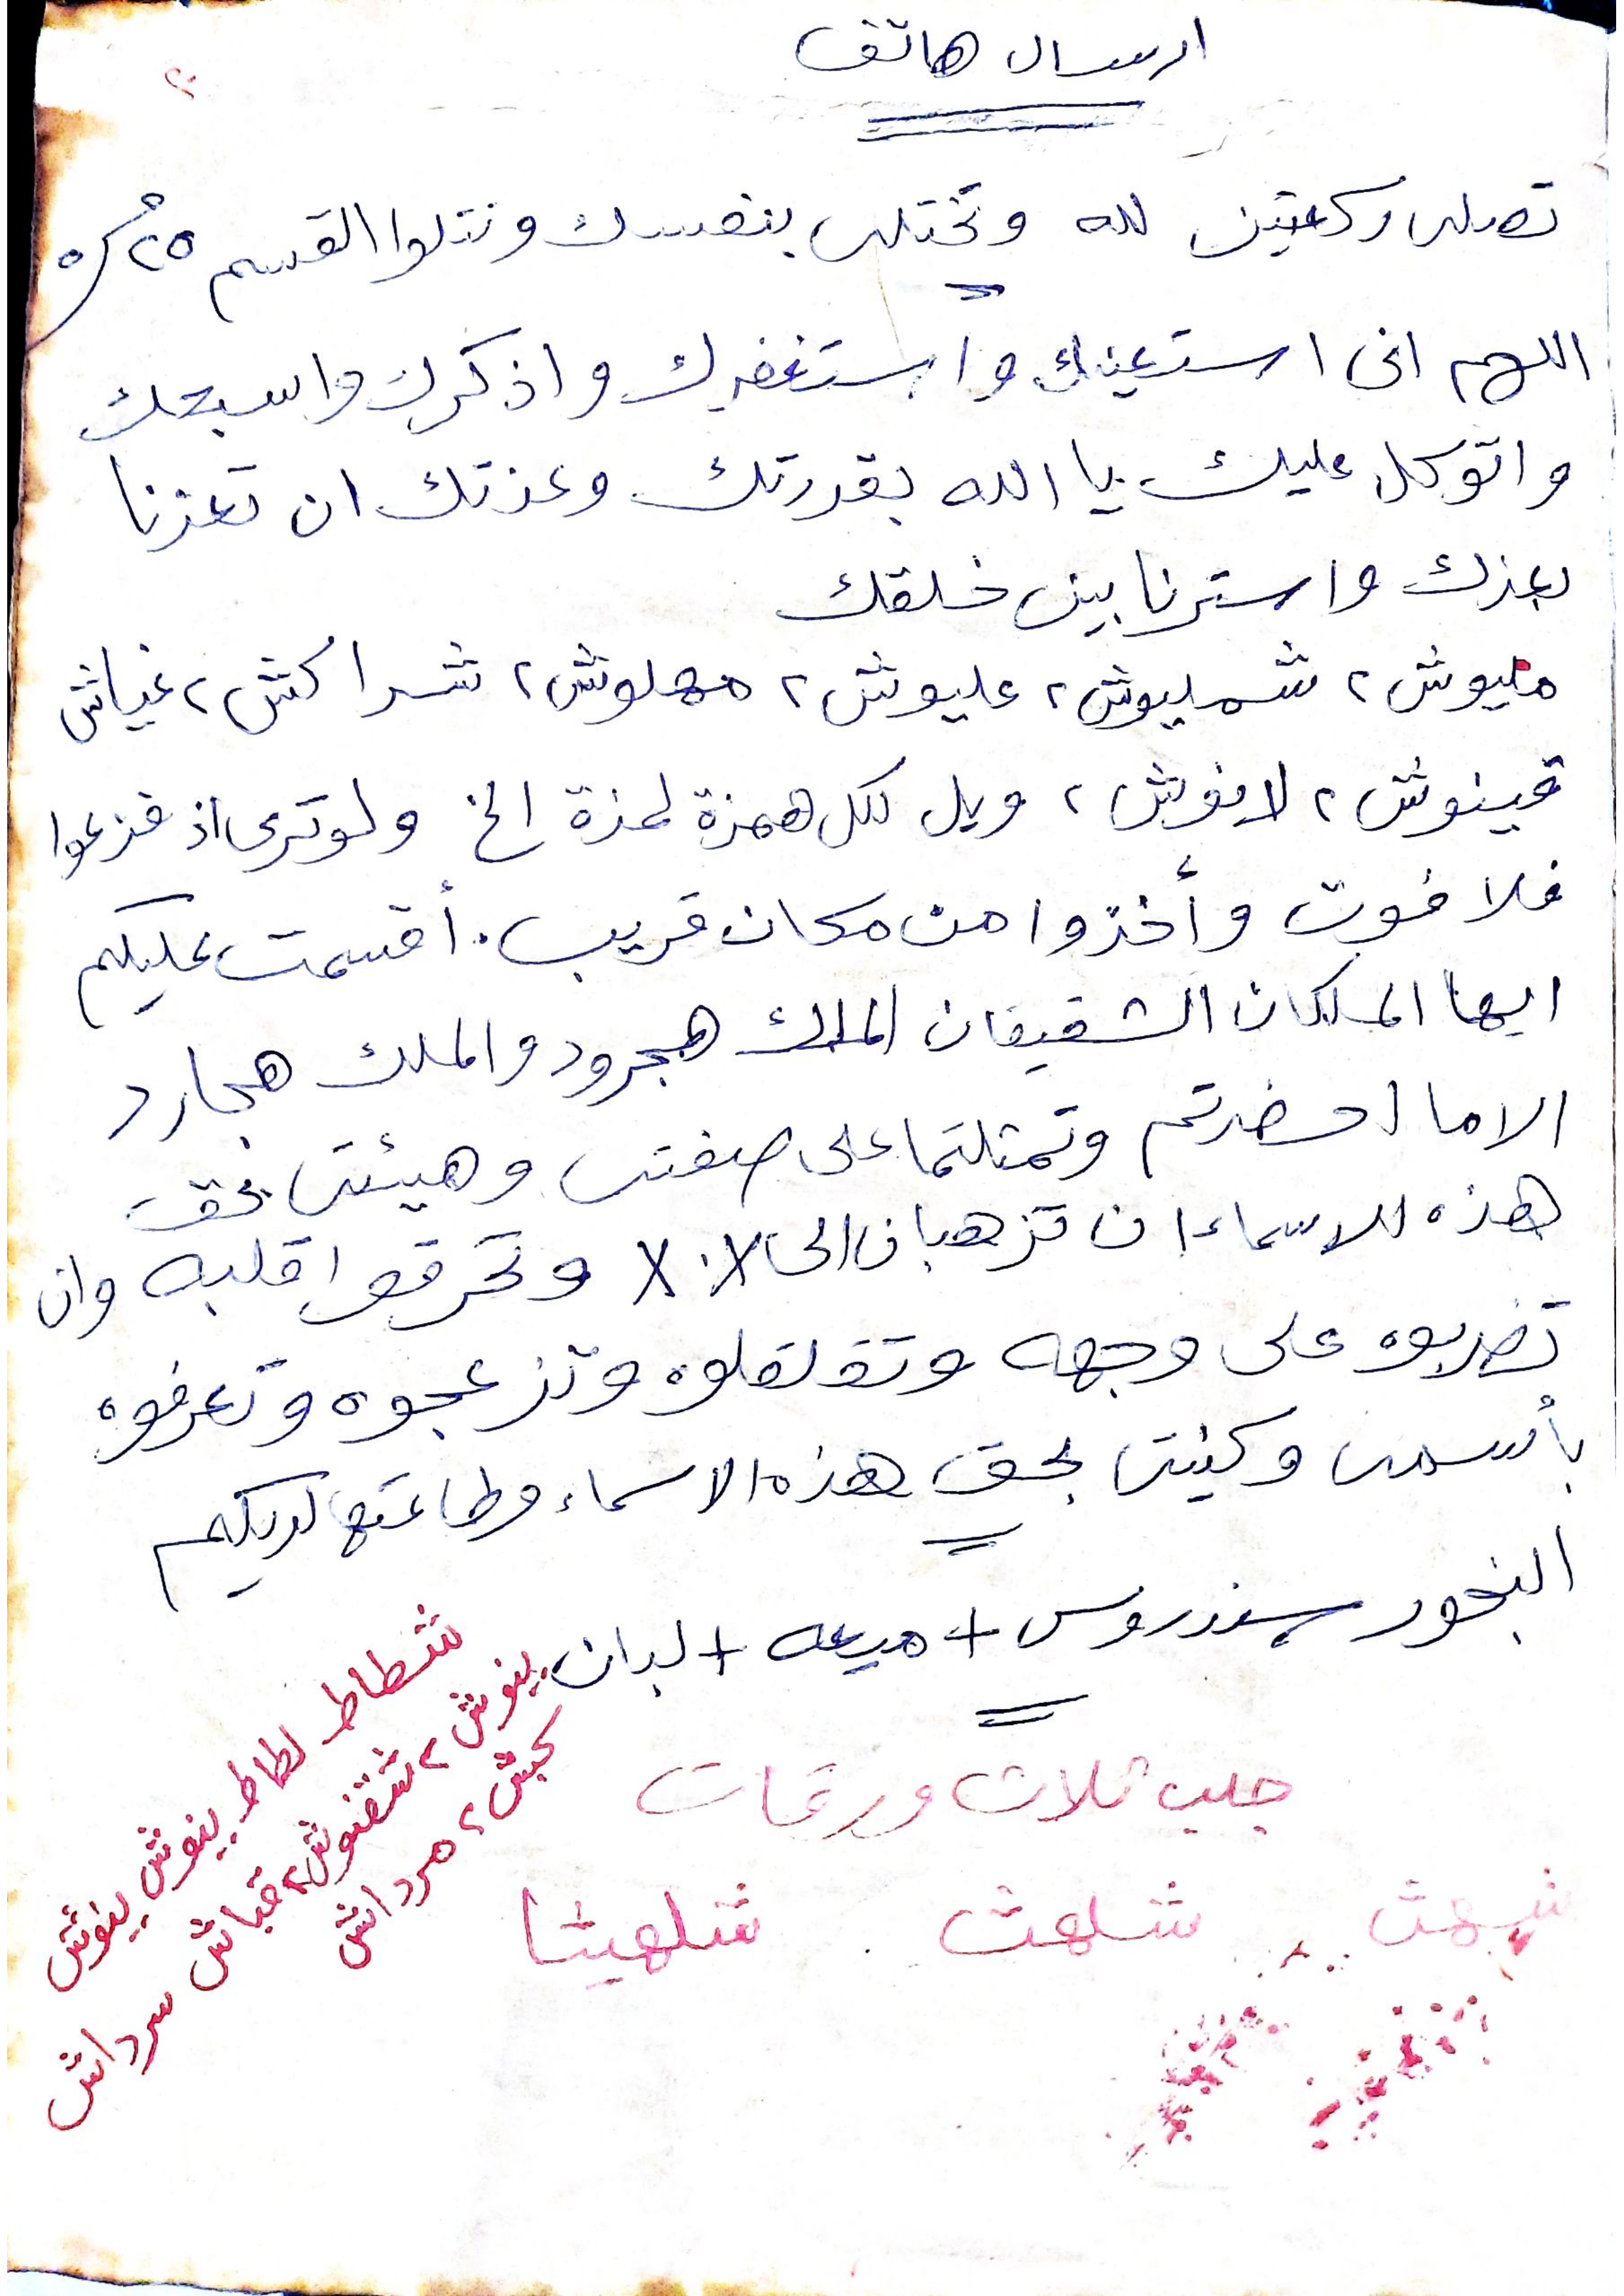 ارسال هاتف
٢٠
تصلى ركعتين لله وتختلى بنفسك وتتلوا القسم ٢٥
اللهم انى استعينك واستغفرك واذكرك واسبحك
واتوكل عليك يا الله بقدرتك وعزتك ان تعزنا
بعزك واسترنا بين خلقك
مليوش ٢ شمليوش ٢ عليوش ٢ مهلوش ٢ شراكش ٢ غياش
قينوش ٢ لانوش ٢ ويل لكل همزة لمزة الخ ولو ترى اذ فزعوا
فلا فوت وأخذوا من مكان قريب . أقسمت عليكم
ايها الملكان الشقيقان الملك هجرود والملك هجارد
الا ما احضرتم وتمثلتما على صفتى وهيئتى بحق
هذه الاسماء ان تزهبان الى X.X وتحرقوا قلبه وان
تضربوه على وجهه وتقلقلوه وتزعجوه وتعرفوه
بأسمى وكنيتى بحق هذه الاسماء وطاعتها لديكم
البخور سندروس + ميعه + لبان
شطاط لطاط ينوش ينوش
ينوش ٢ شقنوش ٢ قباش سرداش
كبش ٢ مرداش
جلب ثلاث ورقات
شلهت شلهيثا